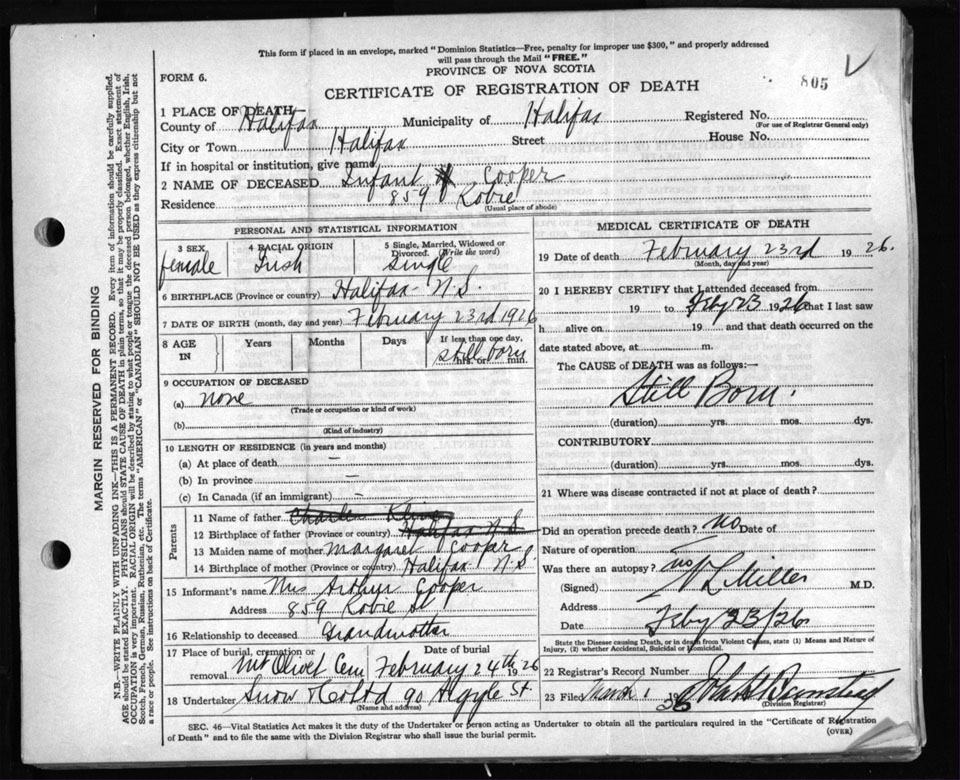 This form if placed in an envelope, marked "Dominion Statistics—Free, penalty for improper use $300," and properly addressed
will pass through the Mail "FREE."
PROVINCE OF NOVA SCOTIA
FORM 6.
805
CERTIFICATE OF REGISTRATION OF DEATH
1 PLACE OF DEATH
County of Halifax Municipality of Halifax Registered No.
(For use of Registrar General only)
City or Town Halifax Street House No.
If in hospital or institution, give name
2 NAME OF DECEASED Infant Cooper
Residence 859 Robie
(Usual place of abode)
PERSONAL AND STATISTICAL INFORMATION
3 SEX 4 RACIAL ORIGIN 5 Single, Married, Widowed or Divorced. (Write the word)
female Irish Single
6 BIRTHPLACE (Province or country) Halifax N.S.
7 DATE OF BIRTH (month, day and year) February 23rd 1926
8 AGE IN Years Months Days If less than one day, hrs. or min.
still born
9 OCCUPATION OF DECEASED
(a) none
(Trade or occupation or kind of work)
(b)
(Kind of industry)
10 LENGTH OF RESIDENCE (in years and months)
(a) At place of death —
(b) In province —
(c) In Canada (if an immigrant) —
Parents
11 Name of father Charles
12 Birthplace of father (Province or country) Halifax N.S
13 Maiden name of mother Margaret Cooper
14 Birthplace of mother (Province or country) Halifax N.S
15 Informant's name Mrs Arthur Cooper
Address 859 Robie St
16 Relationship to deceased Grandmother
17 Place of burial, cremation or removal Mt Olivet Cem Date of burial February 24th 1926
18 Undertaker Snow & Co Ltd 90 Argyle St
(Name and address)
MEDICAL CERTIFICATE OF DEATH
19 Date of death February 23rd 1926.
(Month, day and year)
20 I HEREBY CERTIFY that I attended deceased from
19 to Feby 23 1926 that I last saw
h alive on 19 and that death occurred on the
date stated above, at m.
The CAUSE of DEATH was as follows:—
Still Born.
(duration) yrs. mos. dys.
CONTRIBUTORY
(duration) yrs. mos. dys.
21 Where was disease contracted if not at place of death?
Did an operation precede death? no Date of
Nature of operation
Was there an autopsy? no
(Signed) Miller M.D.
Address
Date Feby 23/26
State the Disease causing Death, or in death from Violent Causes, state (1) Means and Nature of
Injury, (2) whether Accidental, Suicidal or Homicidal.
22 Registrar's Record Number
23 Filed March 1 1926
(Division Registrar)
SEC. 46—Vital Statistics Act makes it the duty of the Undertaker or person acting as Undertaker to obtain all the particulars required in the "Certificate of Registration
of Death" and to file the same with the Division Registrar who shall issue the burial permit.
(OVER)
MARGIN RESERVED FOR BINDING
N.B.—WRITE PLAINLY WITH UNFADING INK—THIS IS A PERMANENT RECORD. Every item of information should be carefully supplied.
AGE should be stated EXACTLY. PHYSICIANS should STATE CAUSE OF DEATH in plain terms, so that it may be properly classified. Exact statement of
OCCUPATION is very important. RACIAL ORIGIN will be described by stating to what people or tongue the deceased person belonged, whether English, Irish,
Scotch, French, German, Russian, Ruthenian, etc. The terms "AMERICAN" or "CANADIAN" SHOULD NOT BE USED as they express citizenship but not
a race or people. See instructions on back of Certificate.